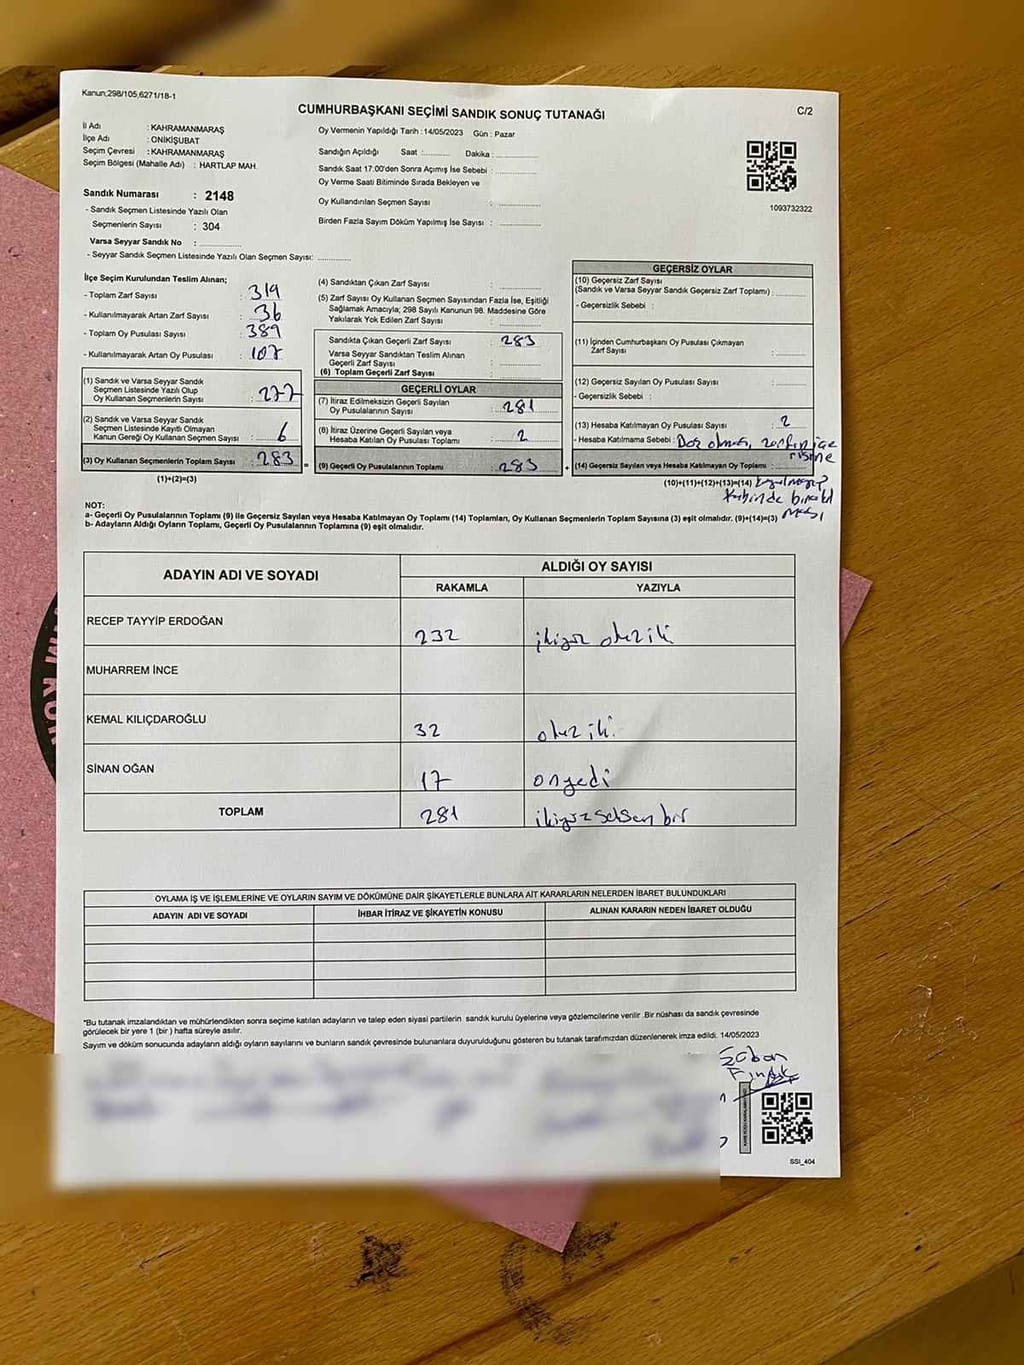 Kanun;298/105,6271/18-1
CUMHURBAŞKANI SEÇİMİ SANDIK SONUÇ TUTANAĞI
C/2
İl Adı : KAHRAMANMARAŞ
İlçe Adı : ONİKİŞUBAT
Seçim Çevresi : KAHRAMANMARAŞ
Seçim Bölgesi (Mahalle Adı) : HARTLAP MAH.
Sandık Numarası : 2148
- Sandık Seçmen Listesinde Yazılı Olan
Seçmenlerin Sayısı : 304
Varsa Seyyar Sandık No :
- Seyyar Sandık Seçmen Listesinde Yazılı Olan Seçmen Sayısı:
Oy Vermenin Yapıldığı Tarih : 14/05/2023 Gün : Pazar
Sandığın Açıldığı Saat : Dakika :
Sandık Saat 17:00'den Sonra Açımış İse Sebebi :
Oy Verme Saati Bitiminde Sırada Bekleyen ve
Oy Kullandırılan Seçmen Sayısı :
Birden Fazla Sayım Döküm Yapılmış İse Sayısı :
1093732322
İlçe Seçim Kurulundan Teslim Alınan;
- Toplam Zarf Sayısı : 319
- Kullanılmayarak Artan Zarf Sayısı : 36
- Toplam Oy Pusulası Sayısı : 389
- Kullanılmayarak Artan Oy Pusulası : 107
(1) Sandık ve Varsa Seyyar Sandık
Seçmen Listesinde Yazılı Olup
Oy Kullanan Seçmenlerin Sayısı : 277
(2) Sandık ve Varsa Seyyar Sandık
Seçmen Listesinde Kayıtlı Olmayan
Kanun Gereği Oy Kullanan Seçmen Sayısı : 6
(3) Oy Kullanan Seçmenlerin Toplam Sayısı : 283
(1)+(2)=(3)
(4) Sandıktan Çıkan Zarf Sayısı :
(5) Zarf Sayısı Oy Kullanan Seçmen Sayısından Fazla İse, Eşitliği
Sağlamak Amacıyla; 298 Sayılı Kanunun 98. Maddesine Göre
Yakılarak Yok Edilen Zarf Sayısı :
Sandıkta Çıkan Geçerli Zarf Sayısı : 283
Varsa Seyyar Sandıktan Teslim Alınan
Geçerli Zarf Sayısı :
(6) Toplam Geçerli Zarf Sayısı :
GEÇERLİ OYLAR
(7) İtiraz Edilmeksizin Geçerli Sayılan
Oy Pusulalarının Sayısı : 281
(8) İtiraz Üzerine Geçerli Sayılan veya
Hesaba Katılan Oy Pusulası Toplamı : 2
(9) Geçerli Oy Pusulalarının Toplamı : 283
=
+
GEÇERSİZ OYLAR
(10) Geçersiz Zarf Sayısı
(Sandık ve Varsa Seyyar Sandık Geçersiz Zarf Toplamı) :
- Geçersizlik Sebebi :
(11) İçinden Cumhurbaşkanı Oy Pusulası Çıkmayan
Zarf Sayısı :
(12) Geçersiz Sayılan Oy Pusulası Sayısı :
- Geçersizlik Sebebi :
(13) Hesaba Katılmayan Oy Pusulası Sayısı : 2
- Hesaba Katılmama Sebebi : Boş olması, zarfın içe
risine
(14) Geçersiz Sayılan veya Hesaba Katılmayan Oy Toplamı :
(10)+(11)+(12)+(13)=(14) koyulmayıp
kabinde bırakıl
ması
NOT:
a- Geçerli Oy Pusulalarının Toplamı (9) ile Geçersiz Sayılan veya Hesaba Katılmayan Oy Toplamı (14) Toplamları, Oy Kullanan Seçmenlerin Toplam Sayısına (3) eşit olmalıdır. (9)+(14)=(3)
b- Adayların Aldığı Oyların Toplamı, Geçerli Oy Pusulalarının Toplamına (9) eşit olmalıdır.
ADAYIN ADI VE SOYADI
ALDIĞI OY SAYISI
RAKAMLA YAZIYLA
RECEP TAYYİP ERDOĞAN 232 ikiyüz otuz iki
MUHARREM İNCE
KEMAL KILIÇDAROĞLU 32 otuz iki
SİNAN OĞAN 17 onyedi
TOPLAM 281 ikiyüz seksen bir
OYLAMA İŞ VE İŞLEMLERİNE VE OYLARIN SAYIM VE DÖKÜMÜNE DAİR ŞİKAYETLERLE BUNLARA AİT KARARLARIN NELERDEN İBARET BULUNDUKLARI
ADAYIN ADI VE SOYADI İHBAR İTİRAZ VE ŞİKAYETİN KONUSU ALINAN KARARIN NEDEN İBARET OLDUĞU
*Bu tutanak imzalandıktan ve mühürlendikten sonra seçime katılan adayların ve talep eden siyasi partilerin sandık kurulu üyelerine veya gözlemcilerine verilir .Bir nüshası da sandık çevresinde
görülecek bir yere 1 (bir ) hafta süreyle asılır.
Sayım ve döküm sonucunda adayların aldığı oyların sayılarını ve bunların sandık çevresinde bulunanlara duyurulduğunu gösteren bu tutanak tarafımızdan düzenlenerek imza edildi. 14/05/2023
Şaban
Fındık
SSI_404